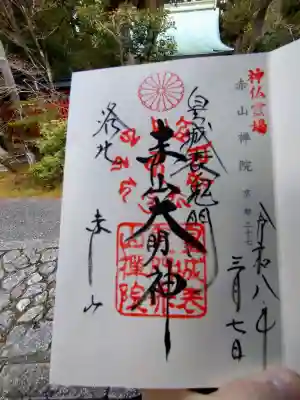 神仏霊場
赤山禅院
京都三十七
令和八年
三月七日
皇城表鬼門
赤山大明神
皇城表
赤山禅院
洛北
赤山